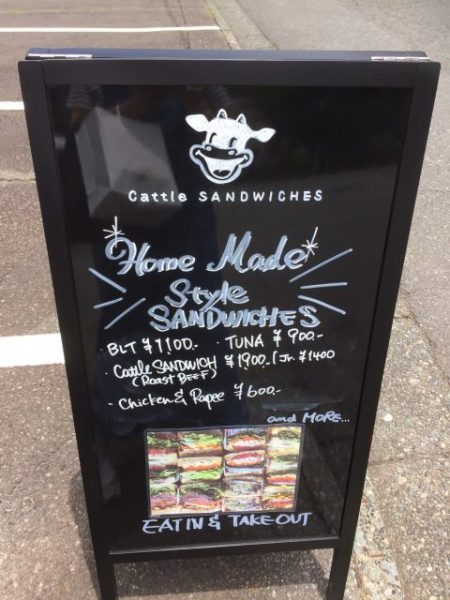 Cattle SANDWICHES
Home Made
Style
SANDWICHES
· BLT ¥1100.- · TUNA ¥900.-
· Cattle SANDWICH ¥1900.- / Jr. ¥1400
(Roast BEEF)
· Chicken & Rapee ¥600.-
and MORE...
EAT IN & TAKE OUT